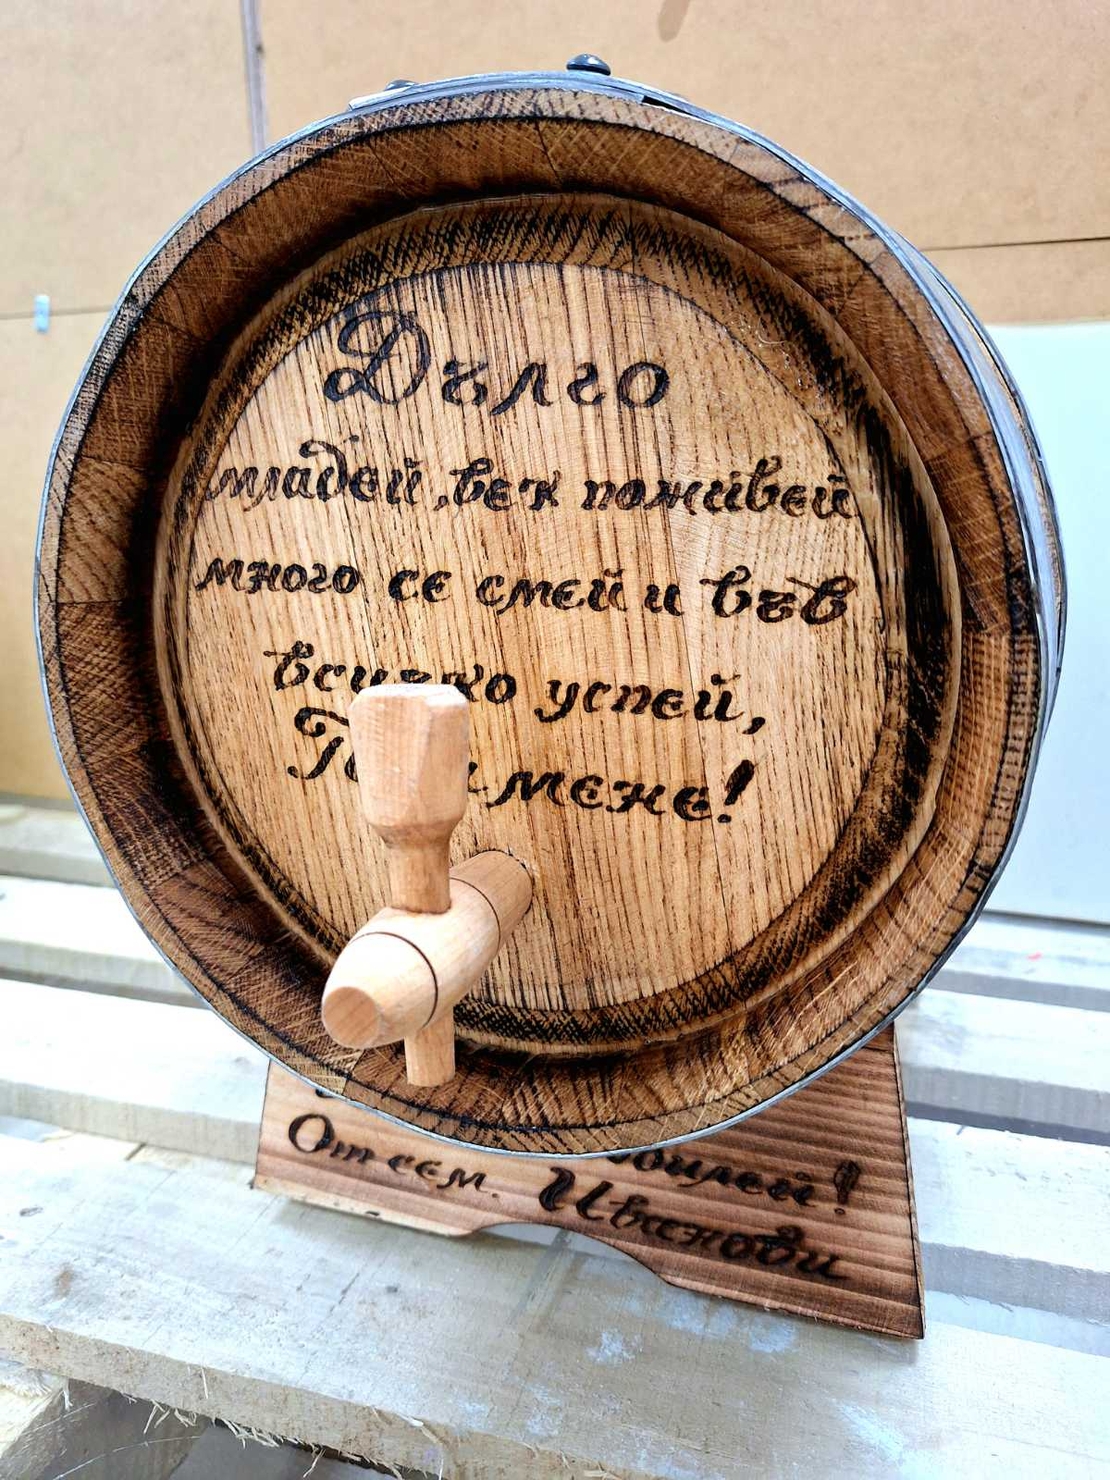 Дълго
младей, век поживей
много се смей и във
всичко успей,
мене!
От сем. Ивanови